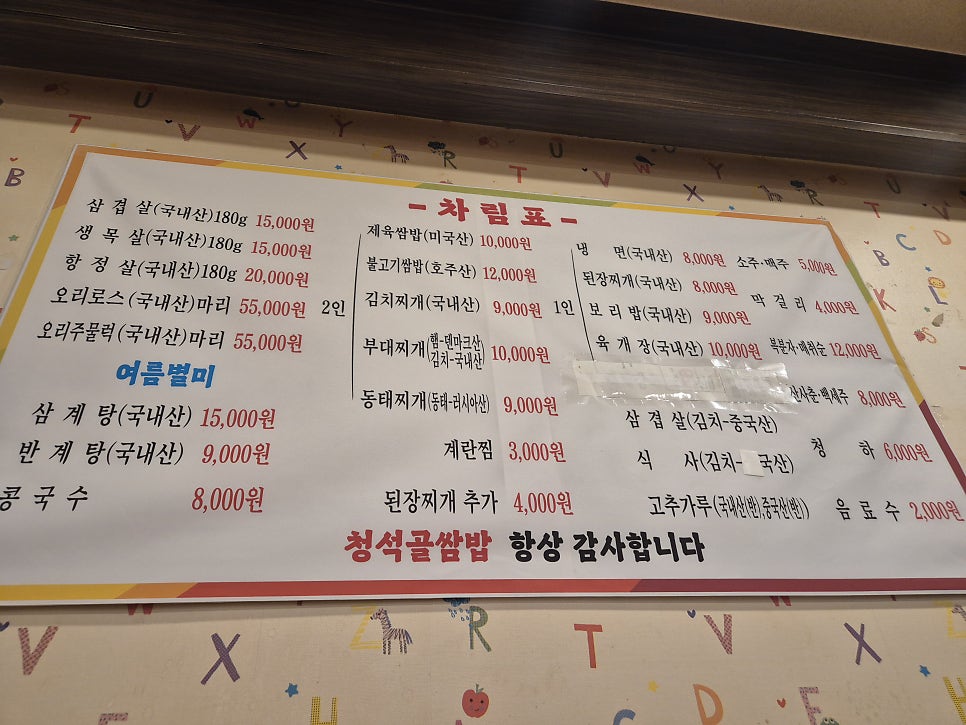 - 차림표 -
삼겹살(국내산)180g 15,000원
생목살(국내산)180g 15,000원
항정살(국내산)180g 20,000원
오리로스(국내산)마리 55,000원
오리주물럭(국내산)마리 55,000원
여름별미
삼계탕(국내산) 15,000원
반계탕(국내산) 9,000원
콩국수 8,000원
2인
제육쌈밥(미국산) 10,000원
불고기쌈밥(호주산) 12,000원
김치찌개(국내산) 9,000원
부대찌개(햄-덴마크산 김치-국내산) 10,000원
동태찌개(동태-러시아산) 9,000원
계란찜 3,000원
된장찌개 추가 4,000원
1인
냉면(국내산) 8,000원
된장찌개(국내산) 8,000원
보리밥(국내산) 9,000원
육개장(국내산) 10,000원
삼겹살(김치-중국산)
식사(김치- 국산)
고추가루(국내산(반),중국산(반))
소주·맥주 5,000원
막걸리 4,000원
복분자·매취순 12,000원
산사춘·백세주 8,000원
청하 6,000원
음료수 2,000원
청석골쌈밥 항상 감사합니다
B U T V W X Y R U T V W X R V B C D K L S
V X Z R T V X H C D E H